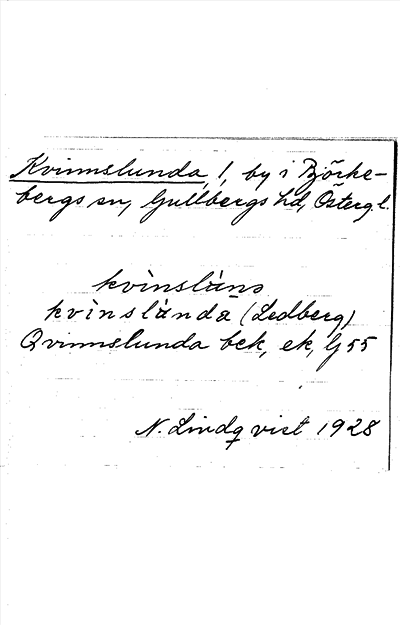 Kvinnslunda, !, by i Björke-
bergs sn, Gullbergs hd, Östergl.
kvìnslùnə
kvìnslùnda (Ledberg)
Qvinnslunda bek, ek, G55
N. Lindqvist 1928